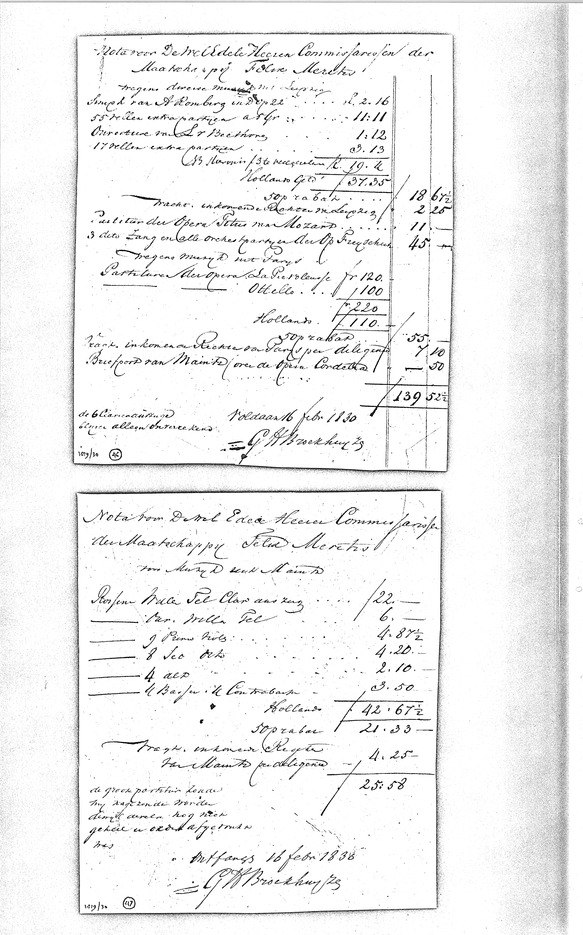 Nota voor De Wel Edele Heeren Commissarissen der
Maatschappij Felix Meritis
wegens diverse muzyk uit Leipzig
Simph van A Romberg in D op 22 . . . . R. 2.16
55 vellen extra partijen a 5 gr . . . 11.11
Ouverture van L v Beethoven 1.12
17 vellen extra partijen 3.13
R. 19.4
Hollands Geld 37.35
50 p rabat 18 67½
Vracht inkomende Rechten van Leipzig 2 25
Partituur der Opera Titus van Mozart 11 —
3 dito Zang en alle orchestpartyen der Op Freyschutz 45 —
wegens muzyk uit Parys
Partituur der opera La Pie voleuse fr 120.—
Othello . . . 100
fr 220
Hollands 110 —
50 p rabat 55 —
Vracht inkomende Rechten van Parys per deligence 7 10
Briefport van Mainz over de Opera Cordelia — 50
139 52½
de 6 Clarinetauszuge
blyven alleen onverrekend
Voldaan 16 febr 1830
G W Broekhuyzg
1019/30 46
Nota voor De Wel Edele Heeren Commissarissen
der Maatschappy Felix Meritis
voor Muzyk uit Maintz
Rossini Wilh Tel Clav auszug . . . . 22.—
Ouv. Willem Tel 6.—
9 Primo Viol: 4.87½
8 Sec dito 4.20.—
4 alt 2.10.—
4 Basso : 4 Contrabasso 3.50
Hollands 42.67½
50 p rabat 21.33 —
Vragt. inkomende Regte
van Maintz per deligence 4.25 —
25.58
de groote partituur zoude
my nagezonde worden
dewyl dezelve nog niet
geheel afgedrukt
was
Ontfangs 16 febr 1830
G W Broekhuyzg
1019/30 47